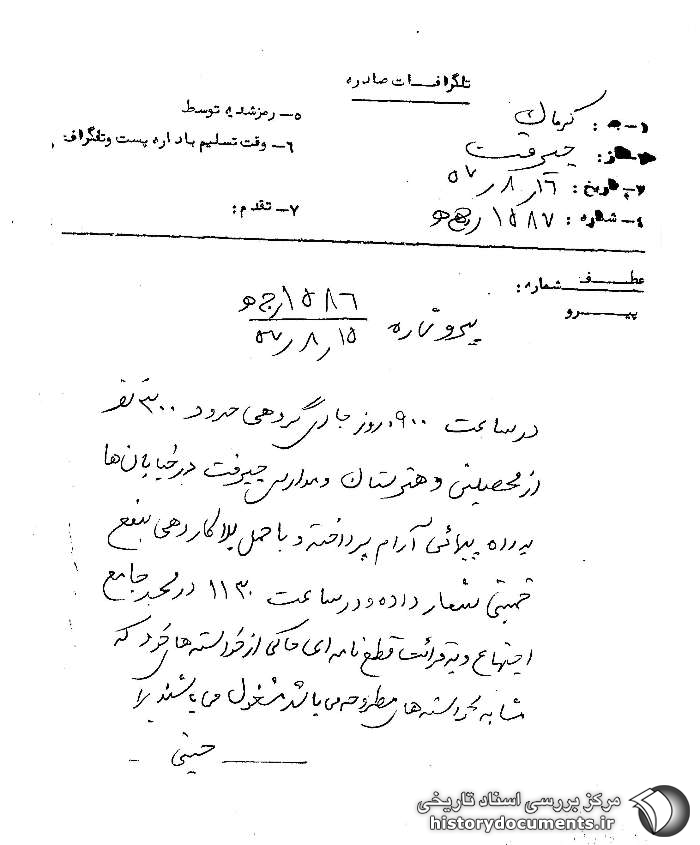 تلگرافات صادره
۱- به : کرمان
۲- از : جیرفت
۳- تاریخ : ۵۷/۸/۱۶
۴- شماره : ۱۵۸۷/ﻫ
۵- رمز شده توسط
۶- وقت تسلیم باداره پست و تلگراف:
۷- تقدم :
عطف
شماره :
پیرو
پیرو شماره ۱۵۸۶/ج ﻫ
۵۷/۸/۱۵
در ساعت ۰۹۰۰ روز جاری گروهی حدود ۳۰۰ نفر
از محصلین و هنرستان و مدارس جیرفت در خیابان‌ها
به رده پیمائی آرام پرداخته و با حمل پلاکاردهی بنفع
خمینی شعار داده و در ساعت ۱۱۳۰ در مسجد جامع
اجتماع و به قرائت قطع نامه ای حاکی از خواسته های خود که
مشابه خواسته های مطروحه می باشد مشغول می باشند
مرکز بررسی اسناد تاریخی
historydocuments.ir